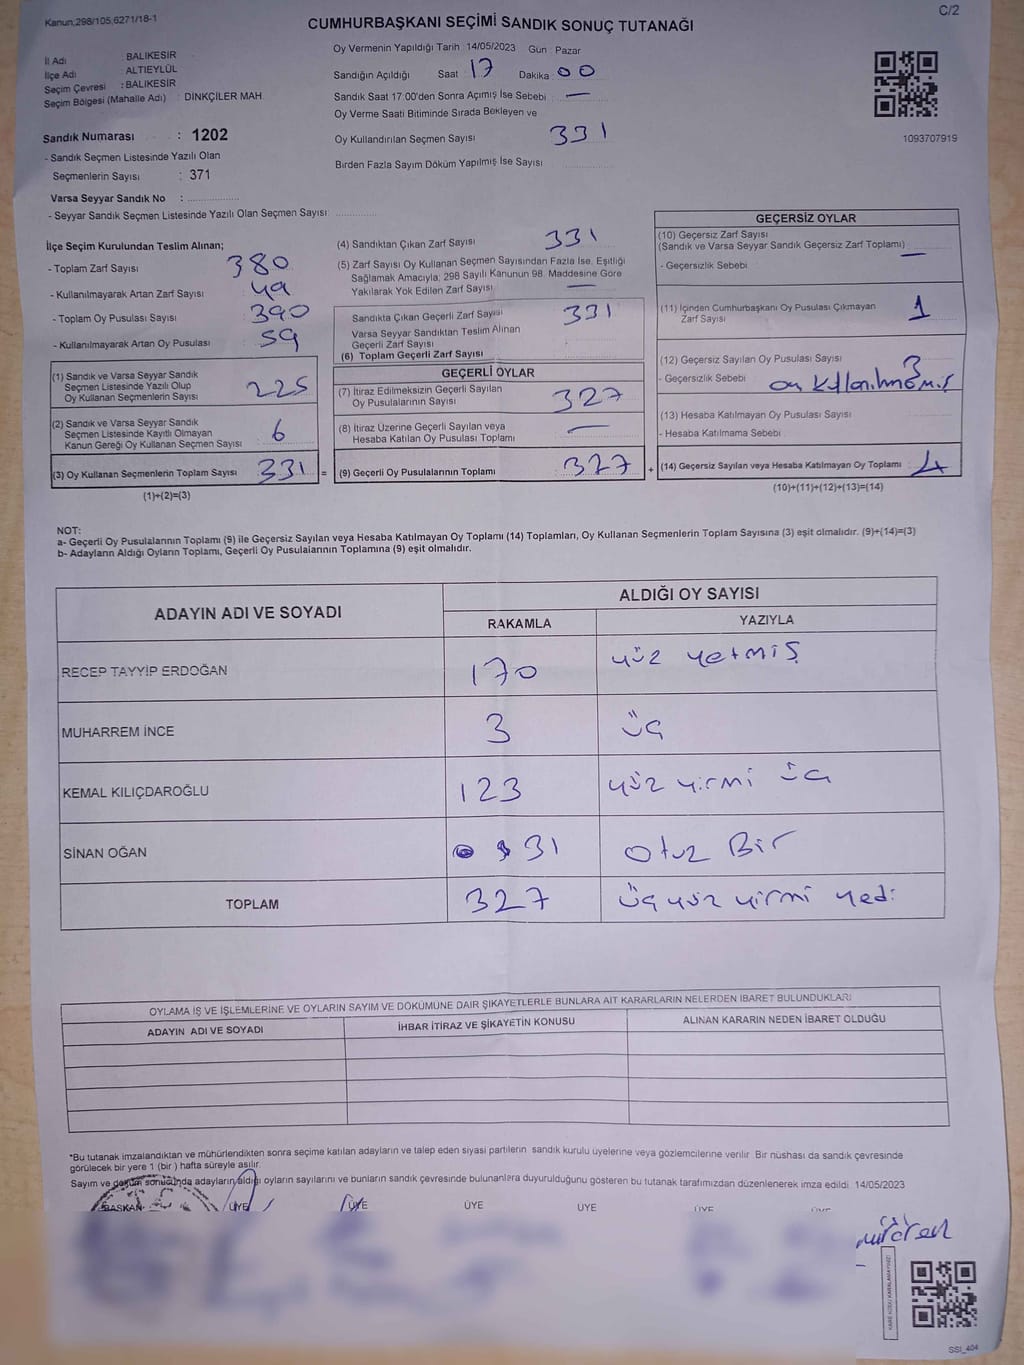 Kanun,298/105,6271/18-1
C/2
CUMHURBAŞKANI SEÇİMİ SANDIK SONUÇ TUTANAĞI
İl Adı BALIKESİR
İlçe Adı ALTIEYLÜL
Seçim Çevresi : BALIKESİR
Seçim Bölgesi (Mahalle Adı) : DİNKÇİLER MAH.
Sandık Numarası : 1202
- Sandık Seçmen Listesinde Yazılı Olan
Seçmenlerin Sayısı : 371
Varsa Seyyar Sandık No :
- Seyyar Sandık Seçmen Listesinde Yazılı Olan Seçmen Sayısı:
Oy Vermenin Yapıldığı Tarih 14/05/2023 Gün : Pazar
Sandığın Açıldığı Saat 17 Dakika 00
Sandık Saat 17:00'den Sonra Açımış İse Sebebi —
Oy Verme Saati Bitiminde Sırada Bekleyen ve
Oy Kullandırılan Seçmen Sayısı 331
Birden Fazla Sayım Döküm Yapılmış İse Sayısı
1093707919
İlçe Seçim Kurulundan Teslim Alınan;
- Toplam Zarf Sayısı 380
- Kullanılmayarak Artan Zarf Sayısı : 49
- Toplam Oy Pusulası Sayısı : 390
- Kullanılmayarak Artan Oy Pusulası : 59
(1) Sandık ve Varsa Seyyar Sandık
Seçmen Listesinde Yazılı Olup
Oy Kullanan Seçmenlerin Sayısı 225
(2) Sandık ve Varsa Seyyar Sandık
Seçmen Listesinde Kayıtlı Olmayan
Kanun Gereği Oy Kullanan Seçmen Sayısı 6
(3) Oy Kullanan Seçmenlerin Toplam Sayısı 331 =
(1)+(2)=(3)
(4) Sandıktan Çıkan Zarf Sayısı 331
(5) Zarf Sayısı Oy Kullanan Seçmen Sayısından Fazla İse, Eşitliği
Sağlamak Amacıyla; 298 Sayılı Kanunun 98. Maddesine Göre
Yakılarak Yok Edilen Zarf Sayısı —
Sandıkta Çıkan Geçerli Zarf Sayısı 331
Varsa Seyyar Sandıktan Teslim Alınan
Geçerli Zarf Sayısı
(6) Toplam Geçerli Zarf Sayısı
GEÇERLİ OYLAR
(7) İtiraz Edilmeksizin Geçerli Sayılan
Oy Pusulalarının Sayısı 327
(8) İtiraz Üzerine Geçerli Sayılan veya
Hesaba Katılan Oy Pusulası Toplamı —
(9) Geçerli Oy Pusulalarının Toplamı 327 +
GEÇERSİZ OYLAR
(10) Geçersiz Zarf Sayısı
(Sandık ve Varsa Seyyar Sandık Geçersiz Zarf Toplamı) —
- Geçersizlik Sebebi
(11) İçinden Cumhurbaşkanı Oy Pusulası Çıkmayan
Zarf Sayısı 1
(12) Geçersiz Sayılan Oy Pusulası Sayısı 3
- Geçersizlik Sebebi oy kullanılmamış
(13) Hesaba Katılmayan Oy Pusulası Sayısı
- Hesaba Katılmama Sebebi
(14) Geçersiz Sayılan veya Hesaba Katılmayan Oy Toplamı : 4
(10)+(11)+(12)+(13)=(14)
NOT:
a- Geçerli Oy Pusulalarının Toplamı (9) ile Geçersiz Sayılan veya Hesaba Katılmayan Oy Toplamı (14) Toplamları, Oy Kullanan Seçmenlerin Toplam Sayısına (3) eşit olmalıdır. (9)+(14)=(3)
b- Adayların Aldığı Oyların Toplamı, Geçerli Oy Pusulalarının Toplamına (9) eşit olmalıdır.
ADAYIN ADI VE SOYADI
ALDIĞI OY SAYISI
RAKAMLA YAZIYLA
RECEP TAYYİP ERDOĞAN 170 yüz yetmiş
MUHARREM İNCE 3 üç
KEMAL KILIÇDAROĞLU 123 yüz yirmi üç
SİNAN OĞAN 31 Otuz Bir
TOPLAM 327 üçyüz yirmi yedi
OYLAMA İŞ VE İŞLEMLERİNE VE OYLARIN SAYIM VE DÖKÜMÜNE DAİR ŞİKAYETLERLE BUNLARA AİT KARARLARIN NELERDEN İBARET BULUNDUKLARI
ADAYIN ADI VE SOYADI
İHBAR İTİRAZ VE ŞİKAYETİN KONUSU
ALINAN KARARIN NEDEN İBARET OLDUĞU
*Bu tutanak imzalandıktan ve mühürlendikten sonra seçime katılan adayların ve talep eden siyasi partilerin sandık kurulu üyelerine veya gözlemcilerine verilir. Bir nüshası da sandık çevresinde
görülecek bir yere 1 (bir ) hafta süreyle asılır.
Sayım ve döküm sonucunda adayların aldığı oyların sayılarını ve bunların sandık çevresinde bulunanlara duyurulduğunu gösteren bu tutanak tarafımızdan düzenlenerek imza edildi. 14/05/2023
BAŞKAN ÜYE ÜYE ÜYE ÜYE ÜYE ÜYE
SSI_404